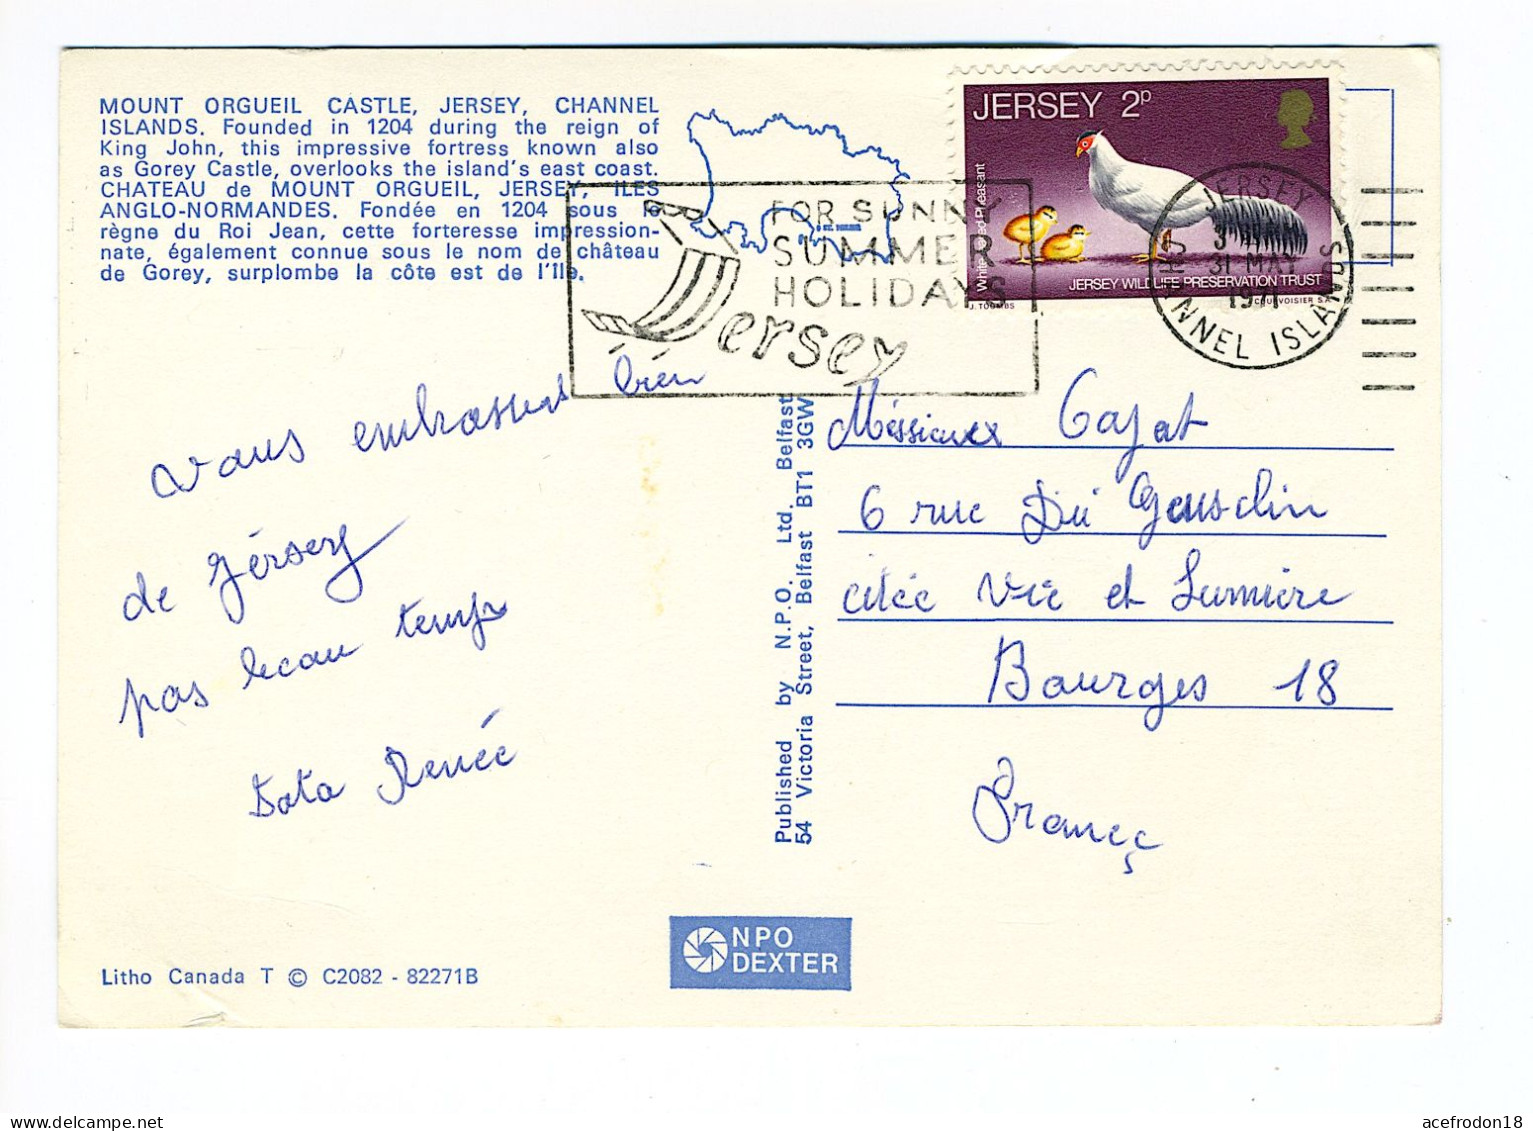 MOUNT ORGUEIL CASTLE, JERSEY, CHANNEL
ISLANDS. Founded in 1204 during the reign of
King John, this impressive fortress known also
as Gorey Castle, overlooks the island's east coast.
CHATEAU de MOUNT ORGUEIL, JERSEY, ILES
ANGLO-NORMANDES. Fondée en 1204 sous le
règne du Roi Jean, cette forteresse impression-
nate, également connue sous le nom de château
de Gorey, surplombe la côte est de l'Ile.
FOR SUNNY
SUMMER
HOLIDAYS
Jersey
JERSEY 2p
JERSEY WILDLIFE PRESERVATION TRUST
J. TOOMBS
COURVOISIER S.A.
JERSEY
31 MAY
1971
CHANNEL ISLANDS
vous embrassent bien
de Jérsery
pas beau temps
tata Renée
Published by N.P.O. Ltd. Belfast
54 Victoria Street, Belfast BT1 3GW
Méssieux Cajat
6 rue Du Geusclin
citéé Vie et Lumière
Bourges 18
Françe
NPO
DEXTER
Litho Canada T © C2082 - 82271B
acefrodon18